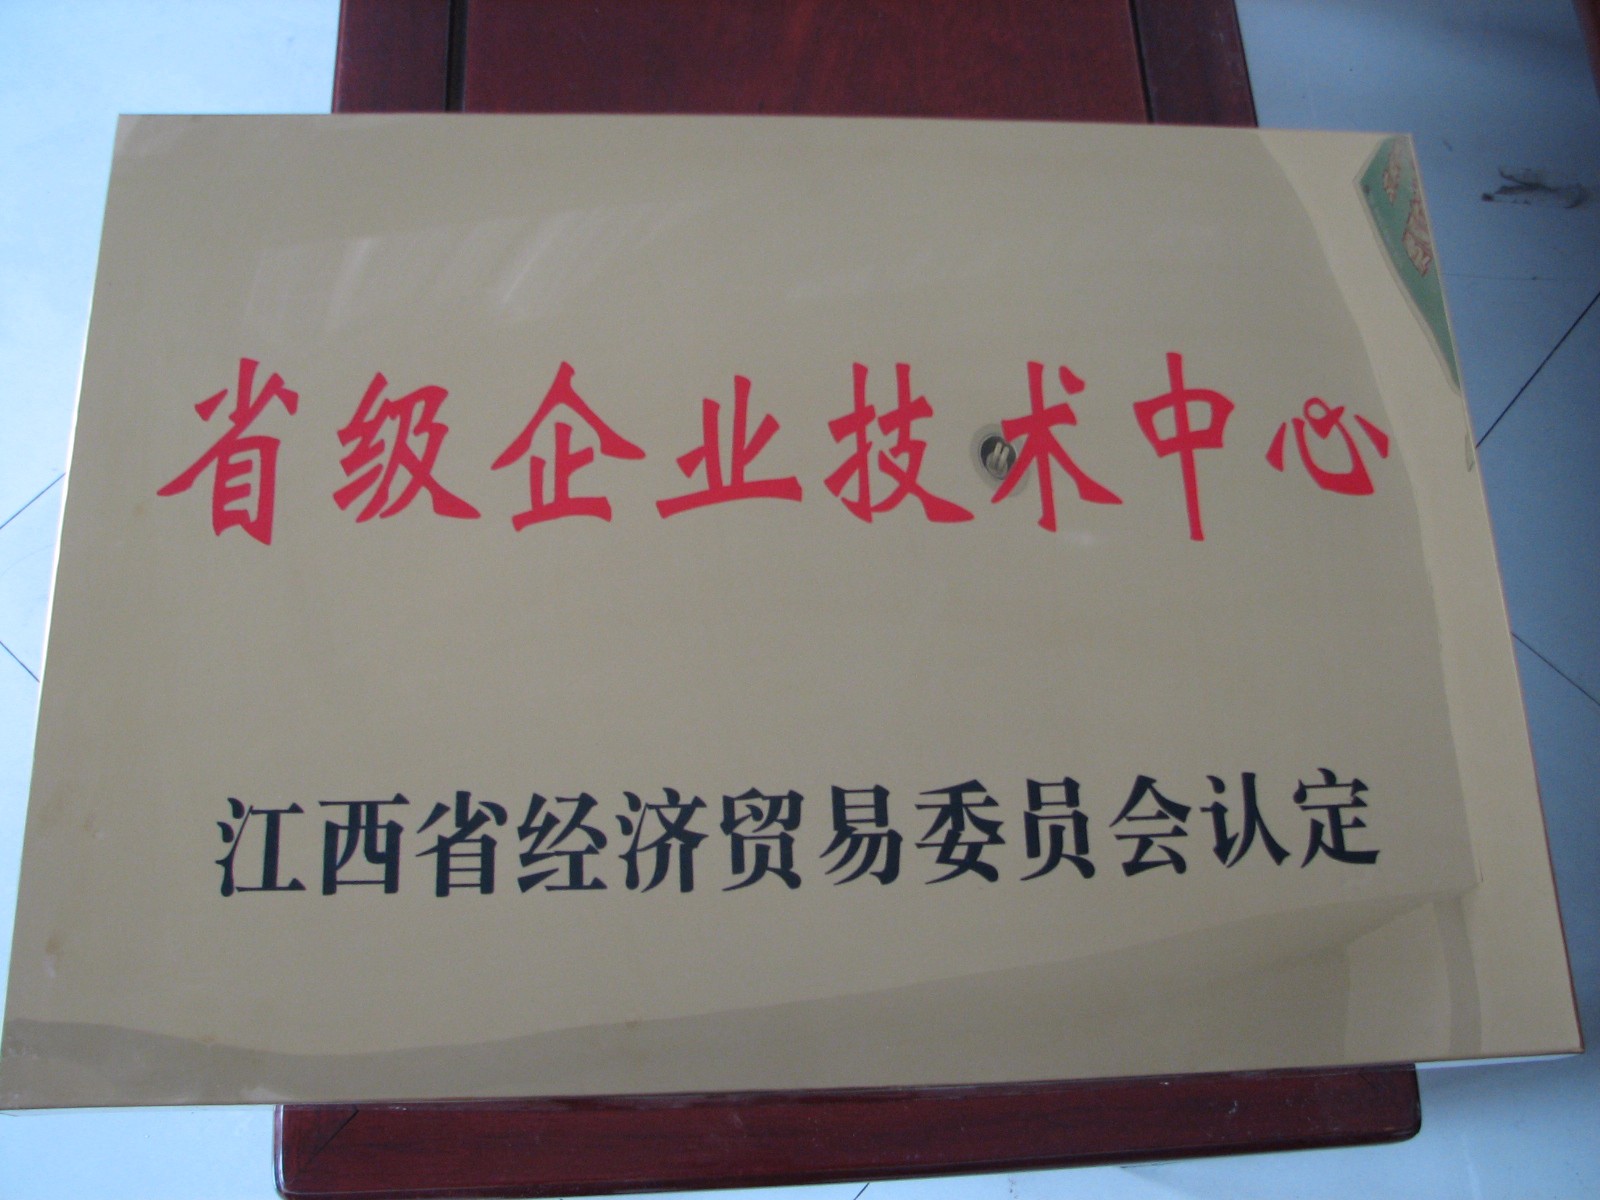 省级企业技术中心
江西省经济贸易委员会认定